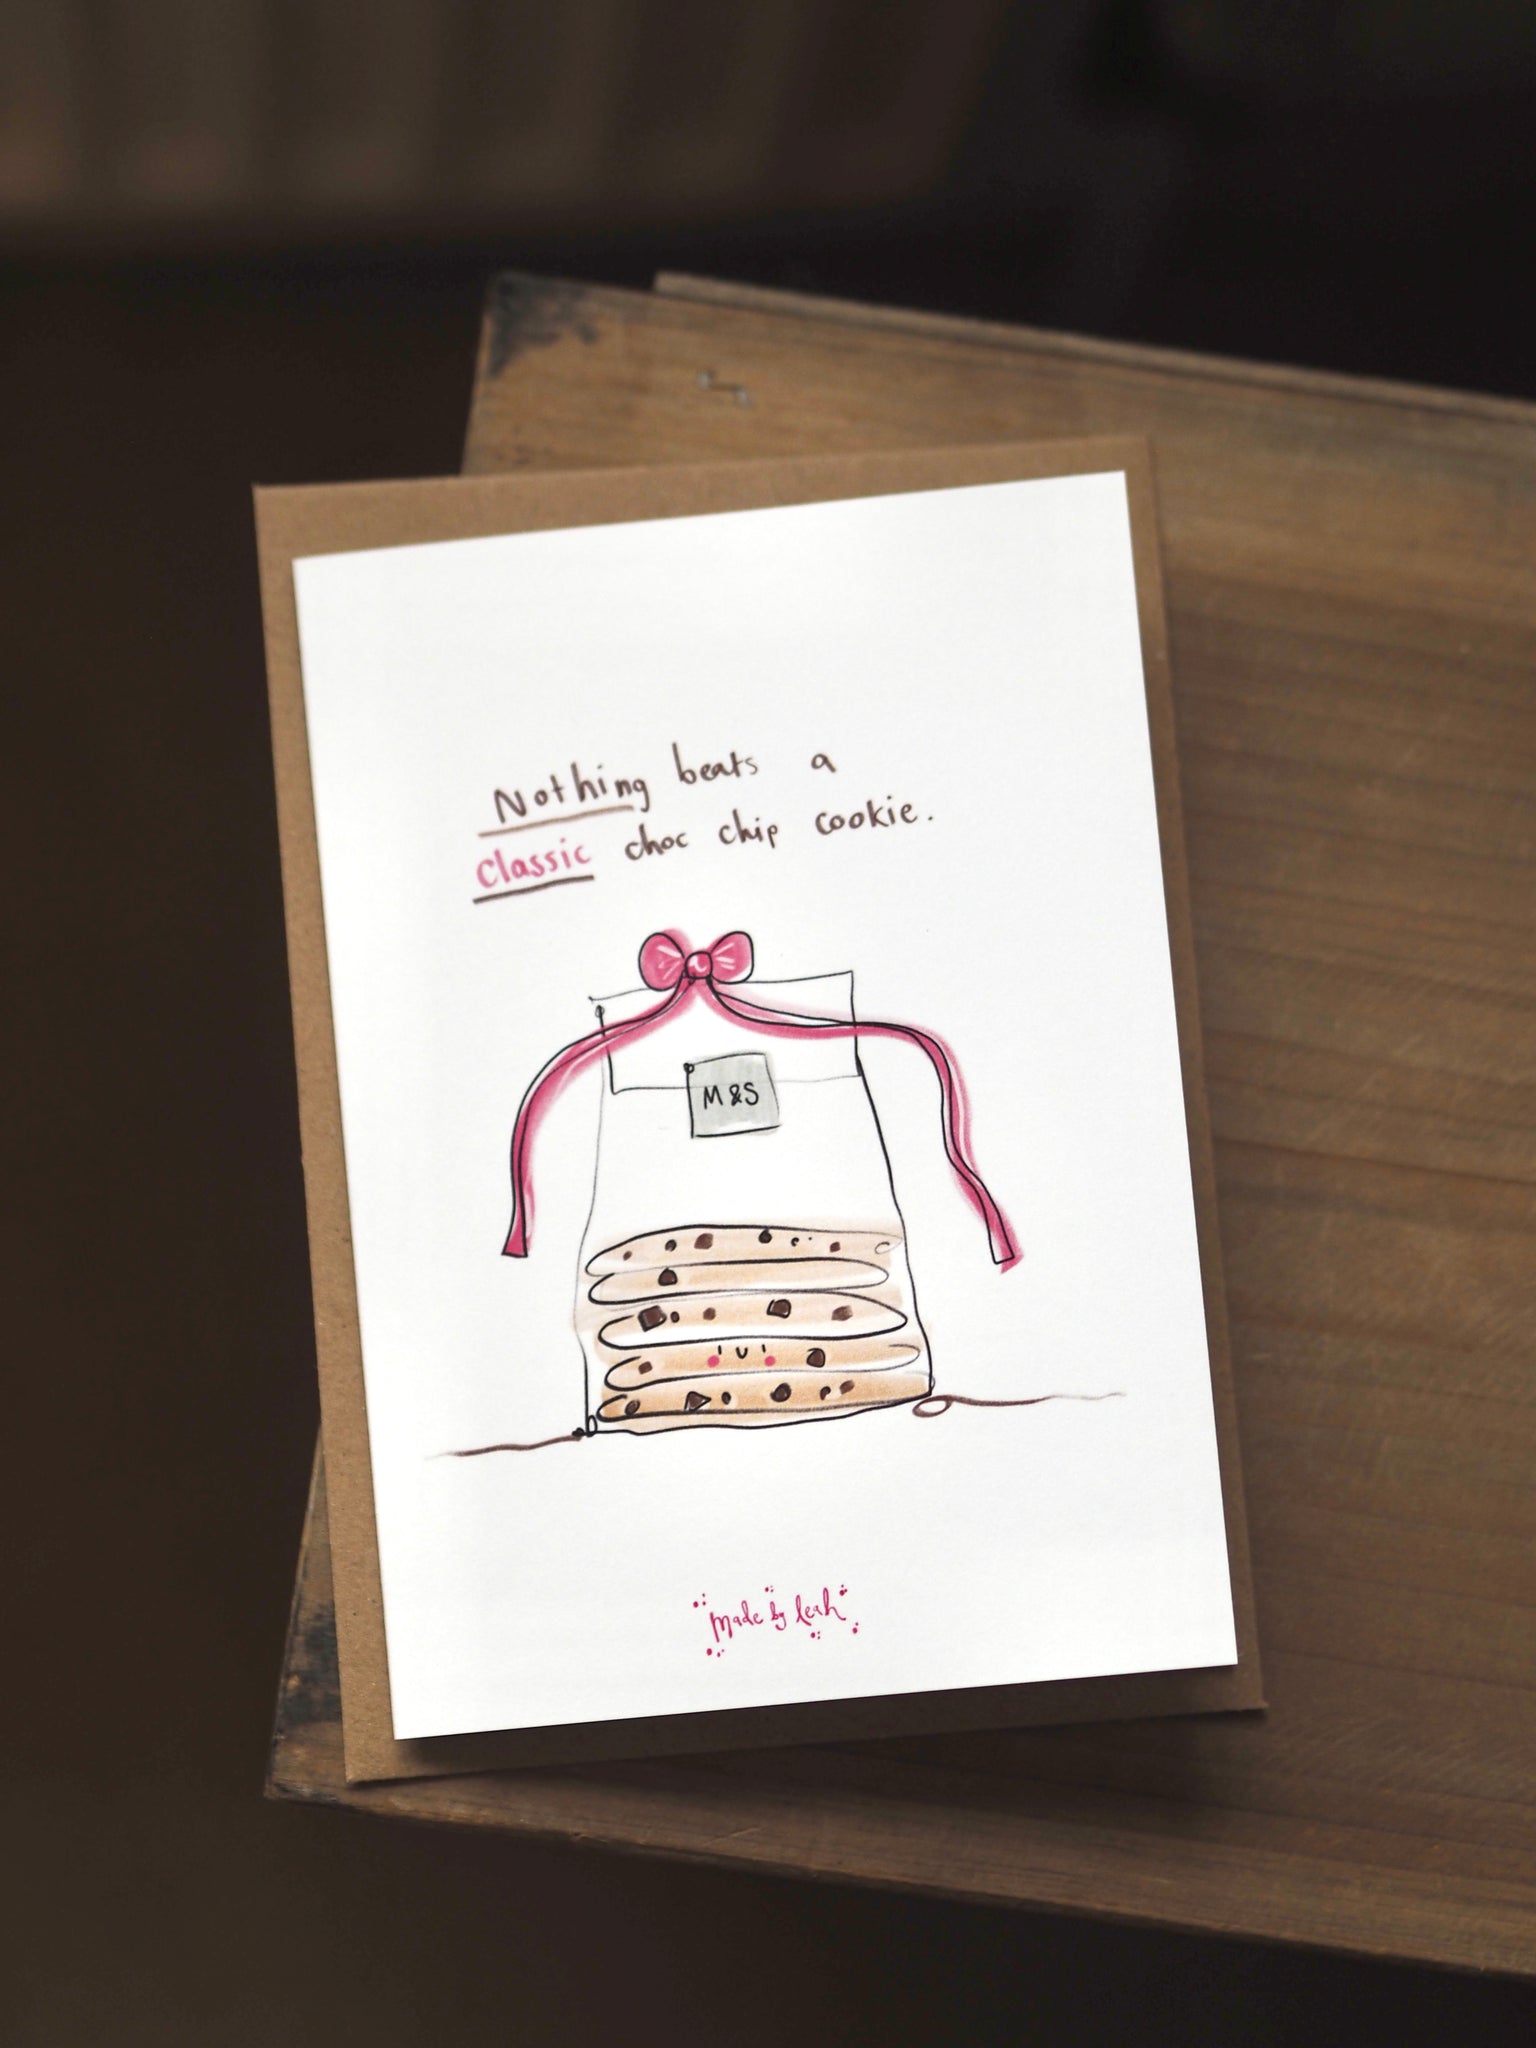 Nothing beats a
classic choc chip cookie.
M&S
made by leah